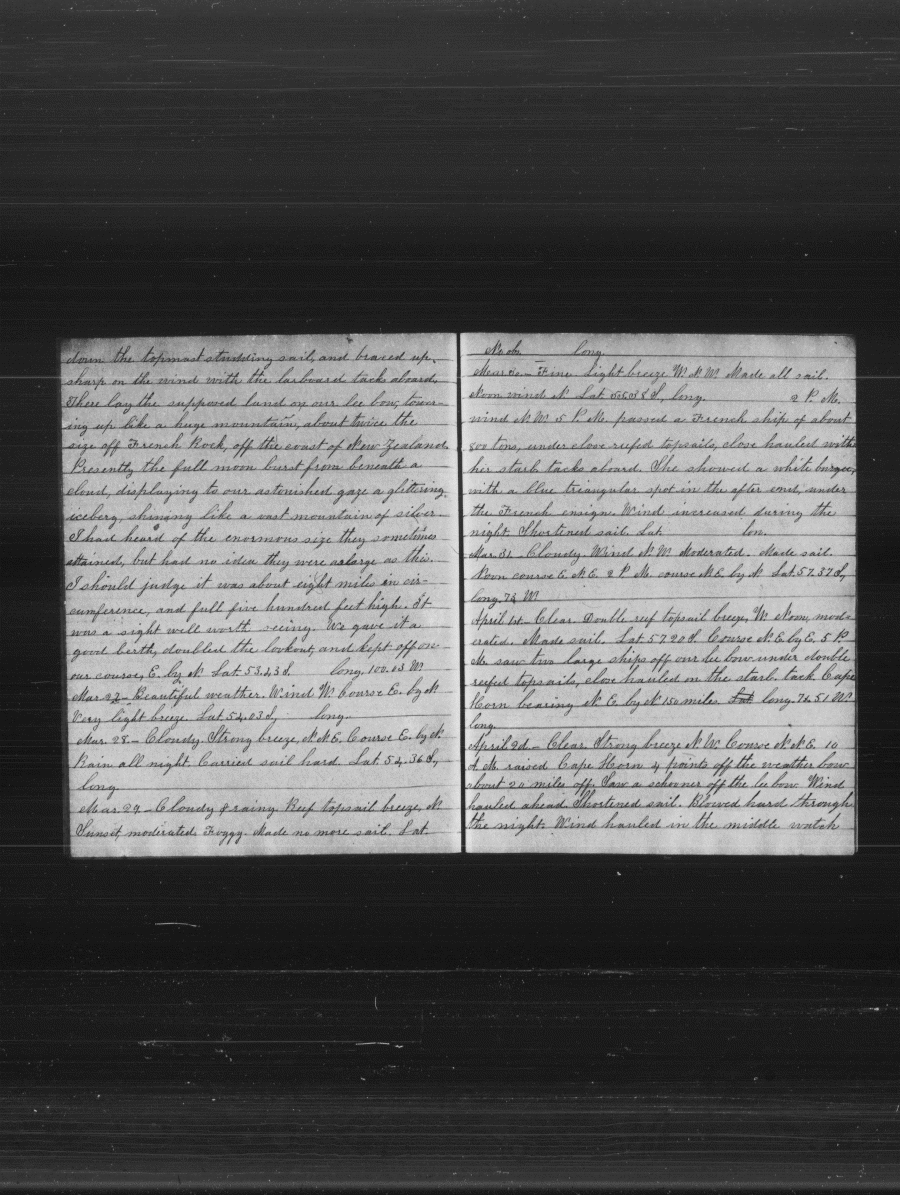 down the topmast studding sail, and braced up
sharp on the wind with the larboard tacks aboard.
There lay the supposed land on our lee bow, tower-
ing up like a huge mountain, about twice the
size off French Rock, off the coast of New Zealand.
Presently the full moon burst from beneath a
cloud, displaying to our astonished gaze a glittering
iceberg, shining like a vast mountain of silver.
I had heard of the enormous size they sometimes
attained, but had no idea they were as large as this.
I should judge it was about eight miles in cir-
cumference, and full five hundred feet high. It
was a sight well worth seeing. We gave it a
good berth, doubled the lookout, and kept off on
our course, E. by N. Lat. 53.43 S. long. 100.03 W
Mar. 27 - Beautiful weather. Wind W. Course E. by N.
Very light breeze. Lat 54.03 S, long.
Mar. 28. - Cloudy. Strong breeze, N.N.E. Course E. by N.
Rain all night. Carried sail hard. Lat. 54.36 S,
long
Mar. 29 - Cloudy & rainy. Reef topsail breeze, N.
Sunset moderated. Foggy. Made no more sail. Lat.
No ob. long.
Mar 30. - Fine. Light breeze W.N.W. Made all sail.
Noon wind N. Lat 55.38 S, long. 2 P.M.
wind N.W. 5 P.M. passed a French ship of about
800 tons, under close reefed topsails, close hauled with
her starb. tacks aboard. She showed a white burgee,
with a blue triangular spot in the after end, under
the French ensign. Wind increased during the
night. Shortened sail. Lat. lon.
Mar. 31. Cloudy. Wind N.W. Moderated. Made sail.
Noon course E.N.E. 2 P.M. course N.E. by N. Lat. 57.37 S,
long. 78 W
April 1st - Clear. Double reef topsail breeze, W. Noon, mod-
erated. Made sail. Lat. 57.20 S. Course N.E. by E. 5 P.
M. saw two large ships off our lee bow under double
reefed topsails, close hauled on the starb. tack. Cape
Horn bearing N.E. by N. 150 miles. Lat long. 74.51 W.
long.
April 2d. - Clear. Strong breeze N.W. Course N.N.E. 10
A.M. raised Cape Horn 4 points off the weather bow
about 20 miles off. Saw a schooner off the lee bow. Wind
hauled ahead. Shortened sail. Blowed hard through
the night. Wind hauled in the middle watch